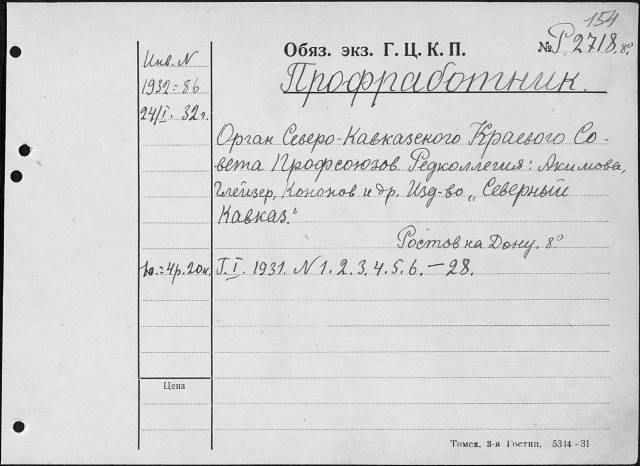 154
Обяз. экз. Г. Ц. К. П.
№ Р 2718. 8º
Инв. N
1932 = 86
24/I. 32 г.
Профработник.
Орган Северо-Кавказского Краевого Со-
вета Профсоюзов. Редколлегия: Акимова,
Глейзер, Кононов и др. Изд-во „Северный
Кавказ."
Ростов на Дону. 8º
= 4 р. 20 к.
Г. I. 1931. N 1. 2. 3. 4. 5. 6. — 28.
Цена
Томск. 3-я Гостип. 5314 - 31